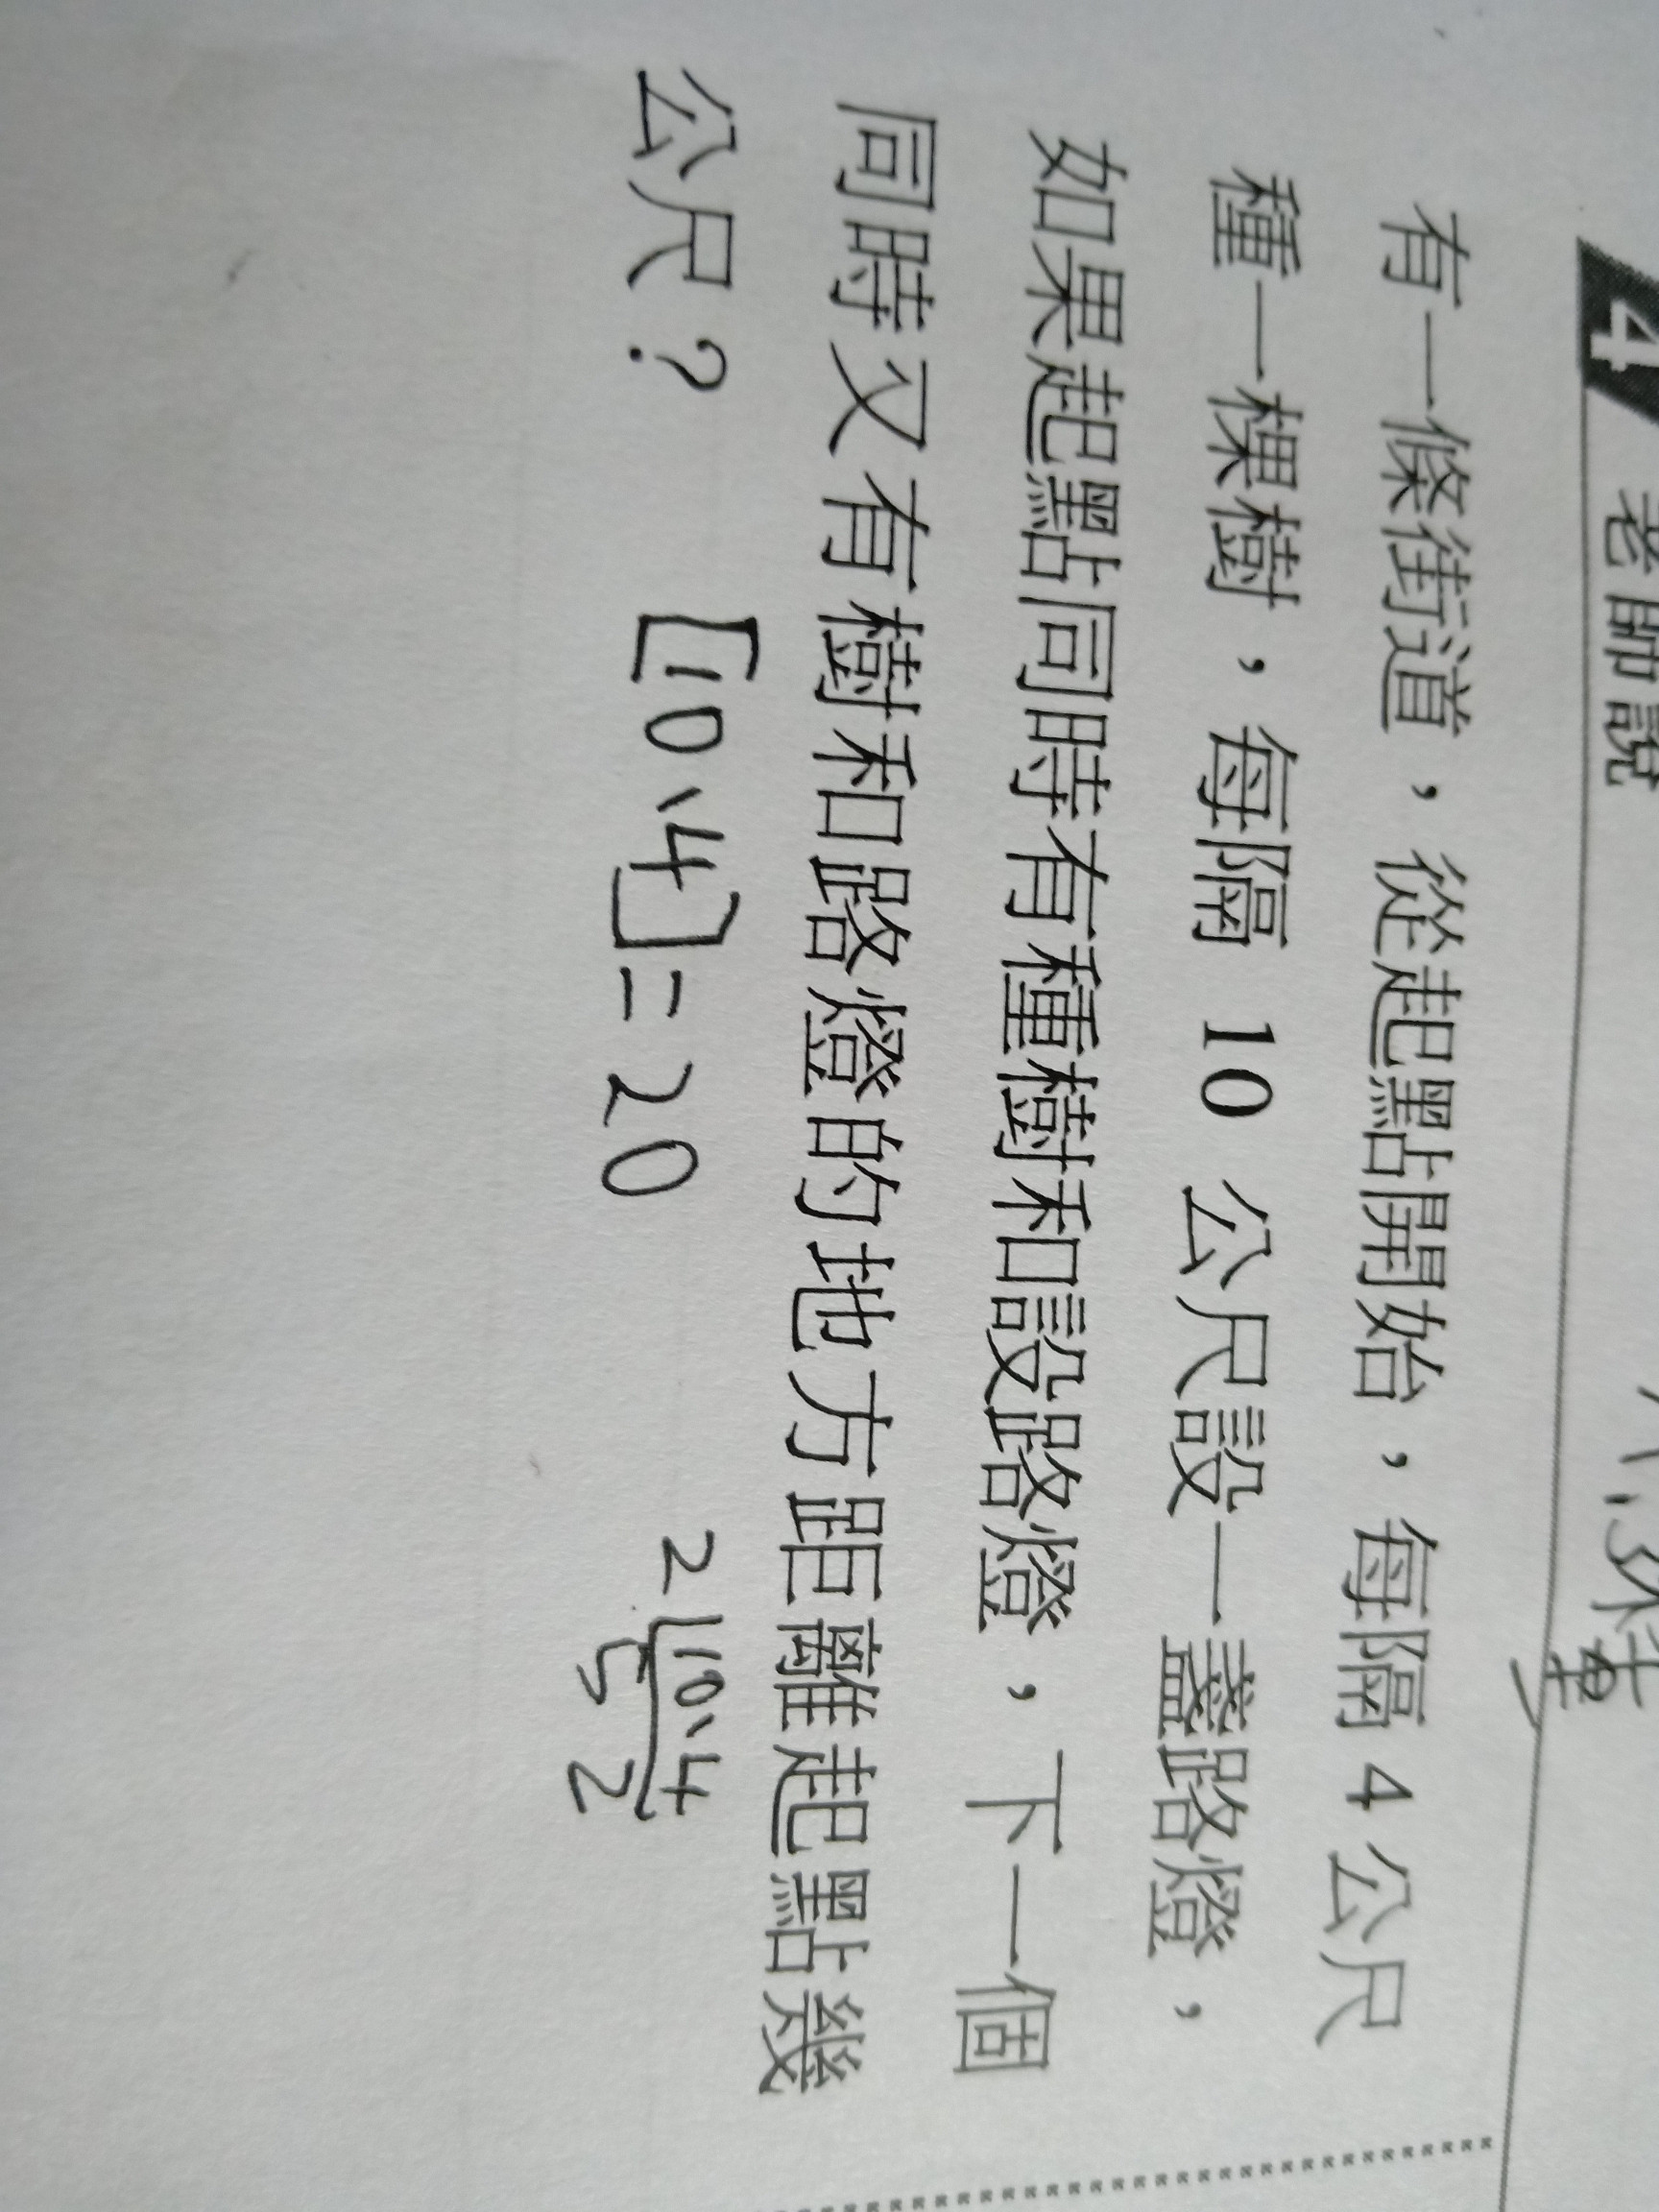 4 老師說
有一條街道，從起點開始，每隔 4 公尺
種一棵樹，每隔 10 公尺設一盞路燈，
如果起點同時有種樹和設路燈，下一個
同時又有樹和路燈的地方距離起點幾
公尺？
[10、4]=20
2 10、4
5 2